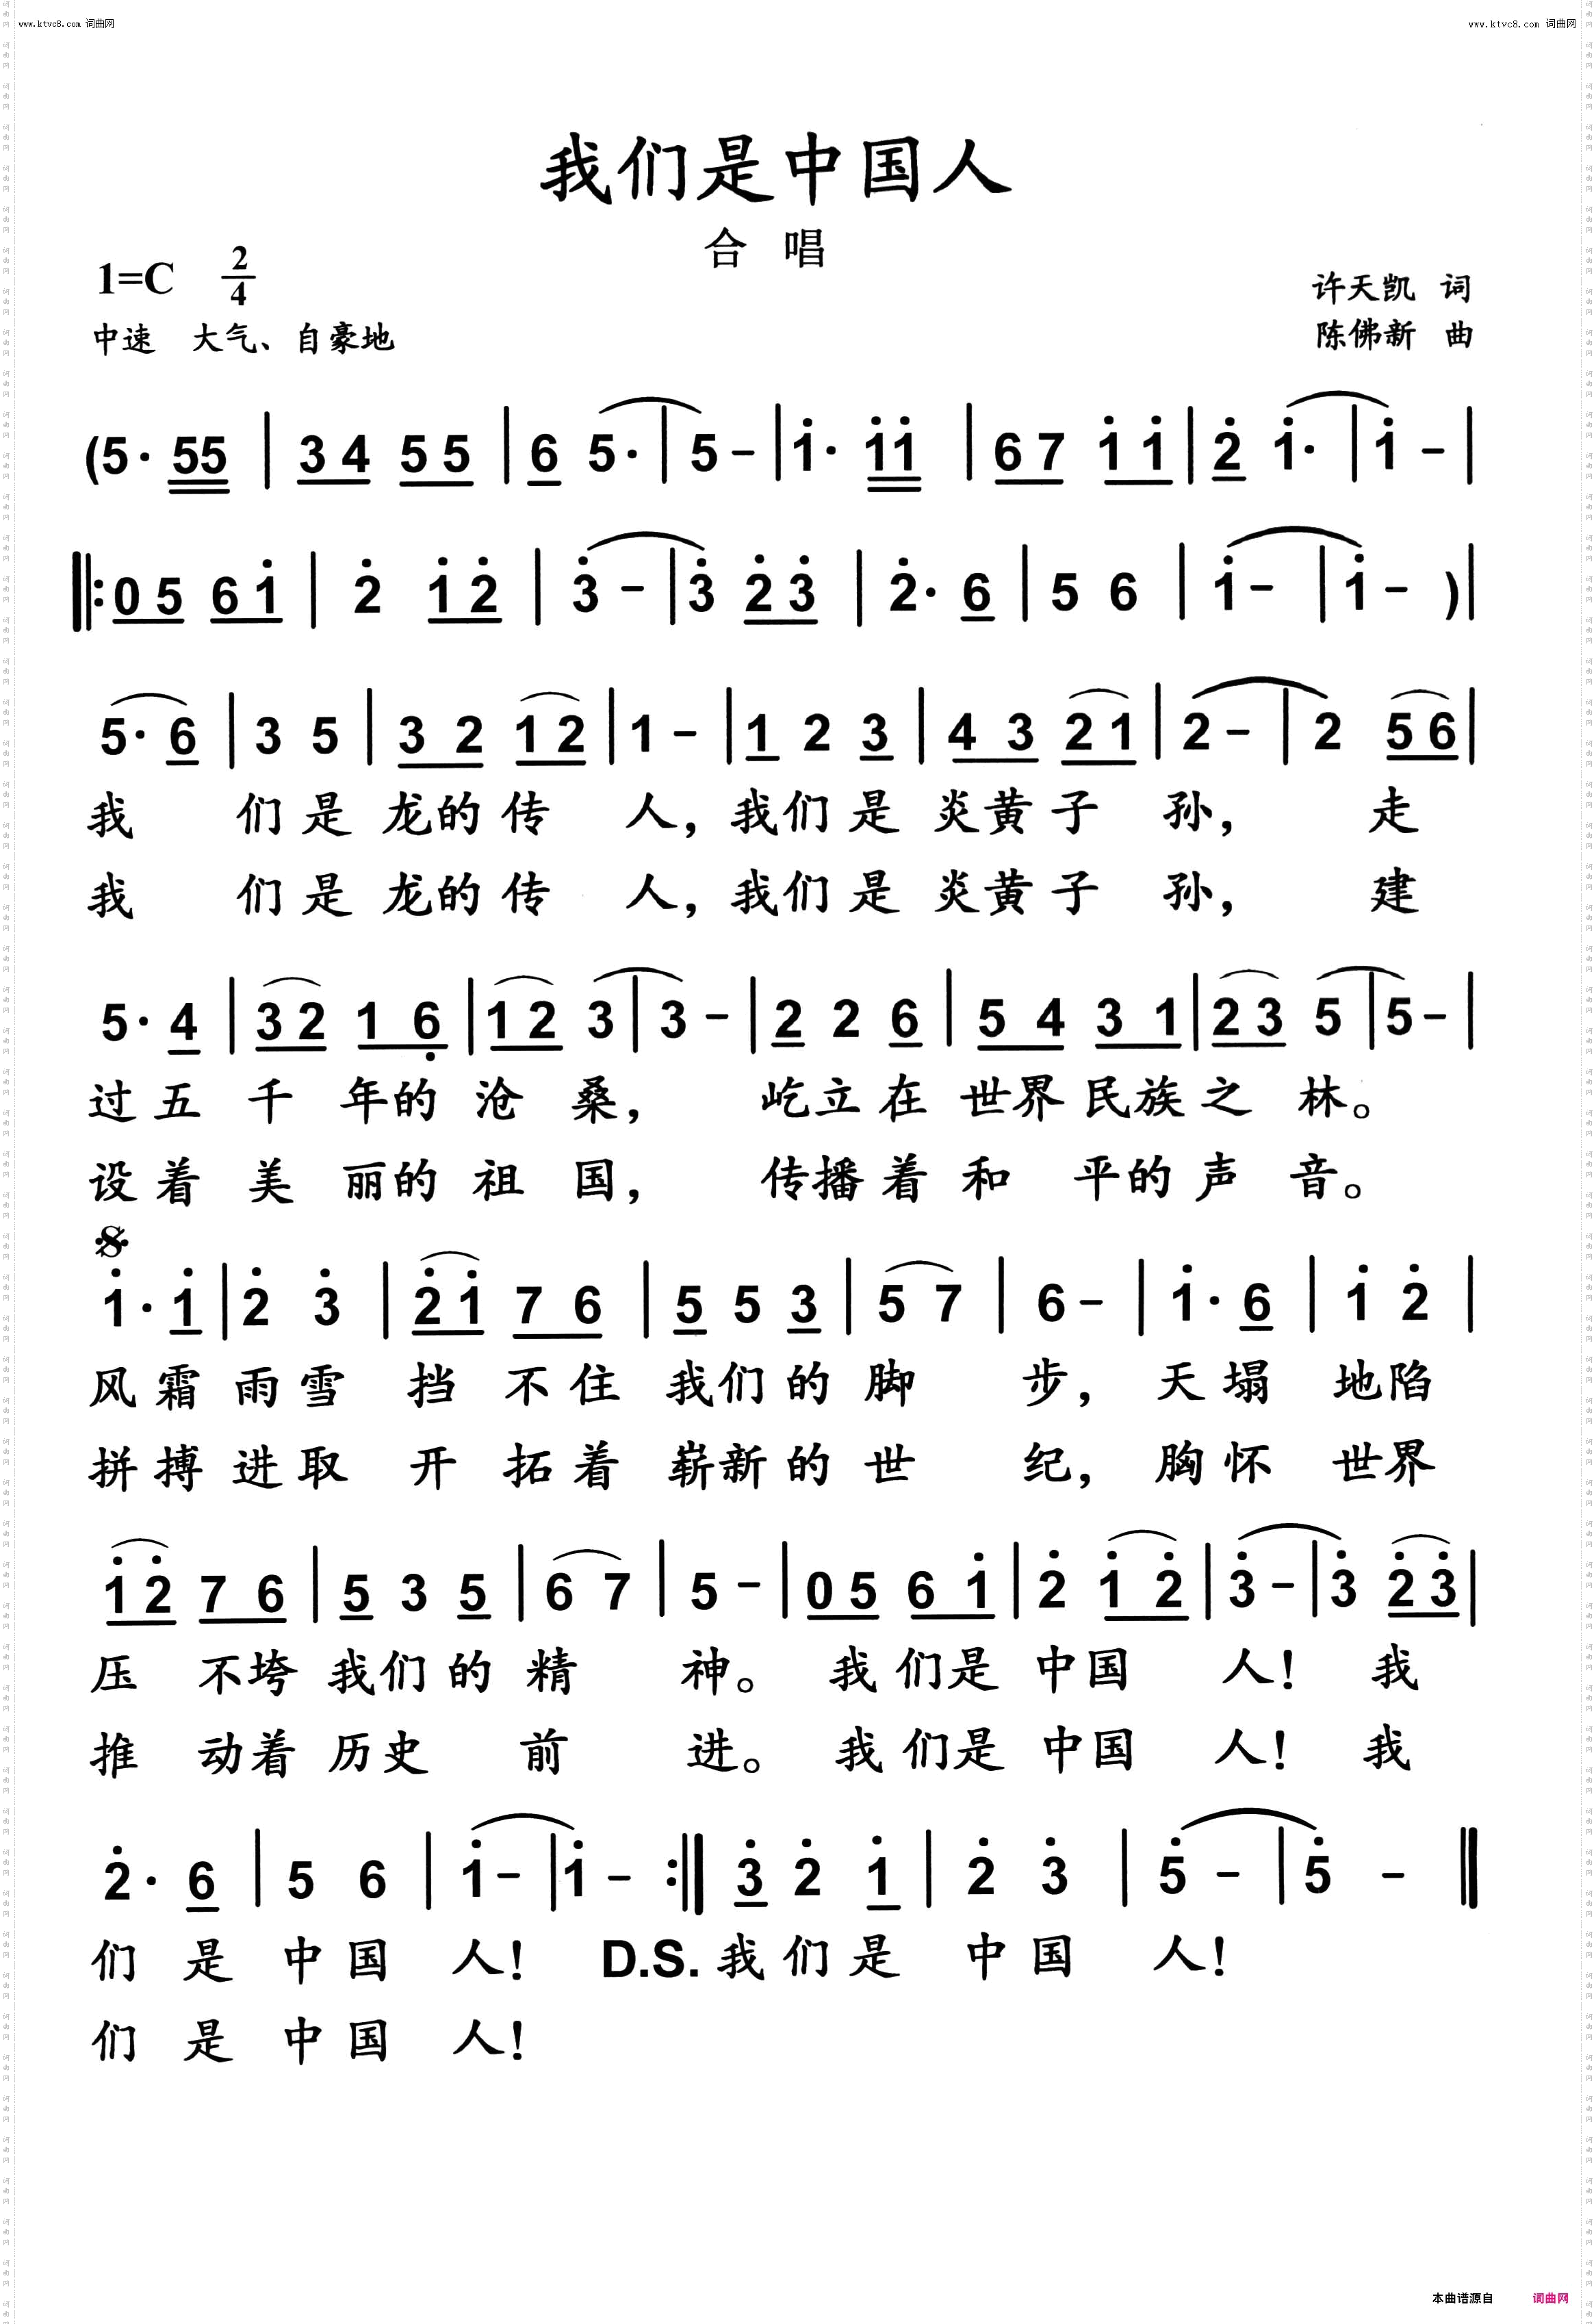 www.ktvc8.com 词曲网
www.ktvc8.com 词曲网
我们是中国人
合 唱
1=C 2/4
许天凯 词
中速 大气、自豪地
陈佛新 曲
(5· 55 | 3 4 5 5 | 6 5· | 5 – | 1̇· 1̇1̇ | 6 7 1̇ 1̇ | 2̇ 1̇· | 1̇ – |
‖: 0 5 6 1̇ | 2̇ 1̇ 2̇ | 3̇ – | 3̇ 2̇ 3̇ | 2̇· 6 | 5 6 | 1̇ – | 1̇ – ) |
5· 6 | 3 5 | 3 2 1 2 | 1 – | 1 2 3 | 4 3 2 1 | 2 – | 2 5 6 |
我 们 是 龙的 传 人，我们 是 炎黄 子 孙， 走
我 们 是 龙的 传 人，我们 是 炎黄 子 孙， 建
5· 4 | 3 2 1 6̣ | 1 2 3 | 3 – | 2 2 6 | 5 4 3 1 | 2 3 5 | 5 – |
过 五 千 年的 沧 桑， 屹立 在 世界 民族 之 林。
设 着 美 丽的 祖 国， 传播 着 和 平的 声 音。
𝄋
1̇· 1̇ | 2̇ 3̇ | 2̇ 1̇ 7 6 | 5 5 3 | 5 7 | 6 – | 1̇· 6 | 1̇ 2̇ |
风 霜 雨 雪 挡 不 住 我们 的 脚 步， 天 塌 地陷
拼 搏 进 取 开 拓 着 崭新 的 世 纪， 胸 怀 世界
1̇ 2̇ 7 6 | 5 3 5 | 6 7 | 5 – | 0 5 6 1̇ | 2̇ 1̇ 2̇ | 3̇ – | 3̇ 2̇ 3̇ |
压 不垮 我们 的 精 神。 我 们是 中国 人! 我
推 动着 历史 前 进。 我 们是 中国 人! 我
2̇· 6 | 5 6 | 1̇ – | 1̇ – :‖ 3̇ 2̇ 1̇ | 2̇ 3̇ | 5̇ – | 5̇ – ‖
们 是 中 国 人! D.S. 我 们 是 中 国 人!
们 是 中 国 人!
本曲谱源自 词曲网